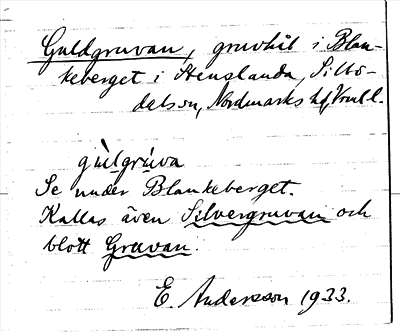 Guldgruvan, gruvhål i Blan-
keberget i Henslanda, Sillbo-
dals sn, Nordmarks hd, Vrml.
gùlgrùva
Se under Blankeberget.
Kallas även Silvergruvan och
blott Gruvan.
E. Andersson 1933.